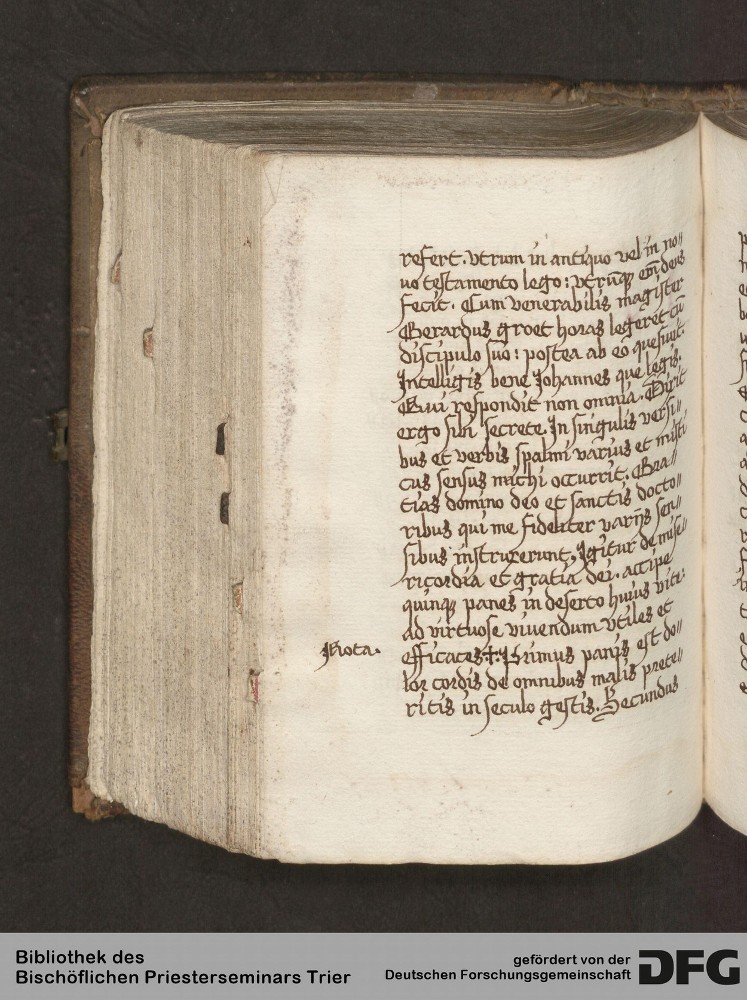 refert. vtrum in antiquo vel in no//
uo testamento lego: vtrūq̄ em̄ deus
fecit. Cum venerabilis magister
Gerardus groet horas legeret cū
discipulo suo: postea ab eo quesiuit.
Intelligis bene Johannes que legis.
Qui respondit non omnia. Dixit
ergo sibi secrete. In singulis versi//
bus et verbis psalmi varius et misti
cus sensus michi occurrit. Gra//
tias domino deo et sanctis docto//
ribus qui me fideliter varijs sen//
sibus instruxerunt. Igitur de mise//
ricordia et gratia dei. accipe
quinq̄ panes in deserto huius vite:
ad virtuose viuendum vtiles et
Nota.
efficaces. Primus panis est do//
lor cordis de omnibus malis prete//
ritis in seculo gestis. Secundus
Bibliothek des
Bischöflichen Priesterseminars Trier
gefördert von der
Deutschen Forschungsgemeinschaft
DFG